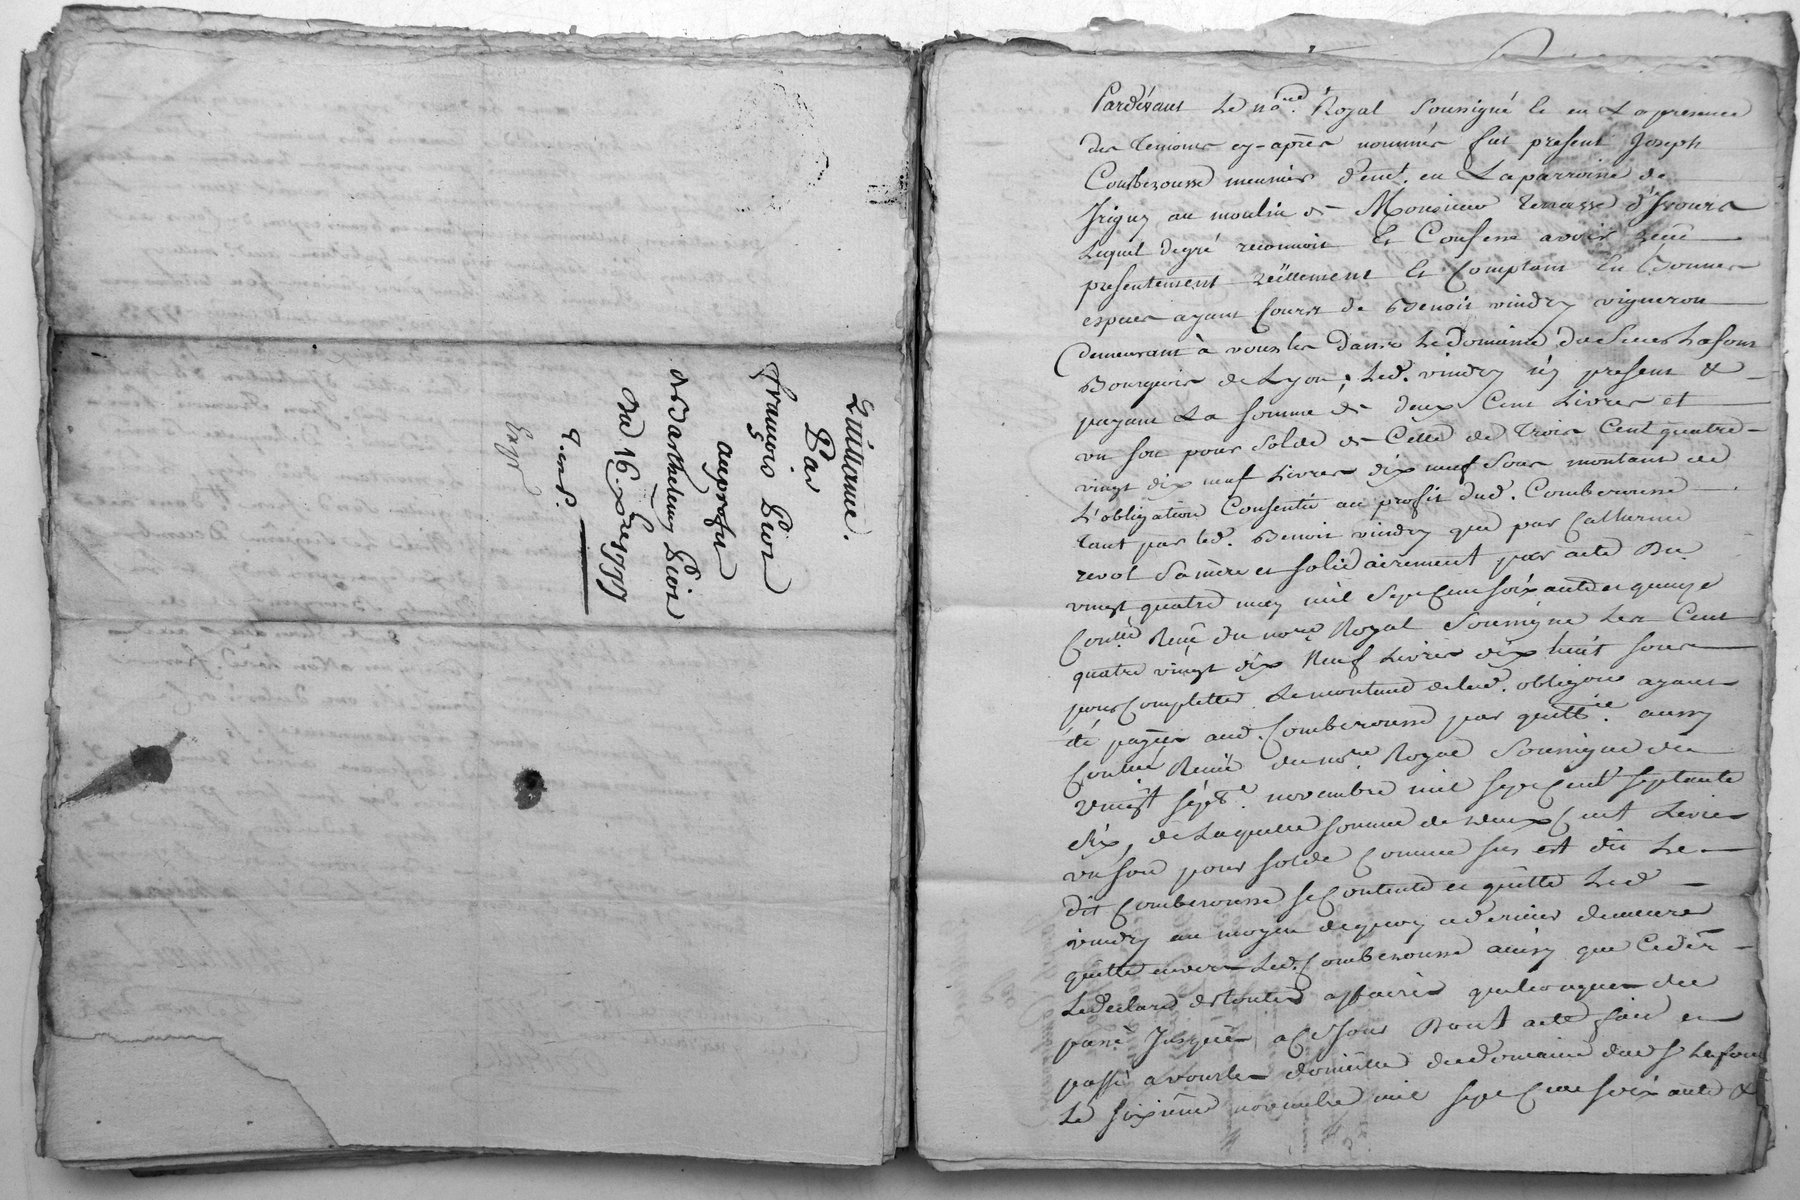 Quittance.
Par
françois Pivos
au profit
de Barthelemy Pivos
du 16. xbre 1777
Expé
Pardevant Le nore. Royal soussigné et en La presence
des temoins cy-après nommés fut present Joseph
Comberousse meunier demt. en La parroisse de
Irigny au moulin de Monsieur terrasse d'yvours
Lequel degré reconnoit Et Confesse avoir reçu
presentement réellement Et Comptant En Bonnes
especes ayant Cours de Benoit vindry vigneron
demeurant à vourles dans Le domaine du sieur Lafont
Bourgeois de Lyon, Led. vindry icy present &
payant La somme de deux Cent Livres et
un sou pour solde de Celle de trois Cent quatre
vingt dix neuf Livres dix neuf sous montant de
L'obligation Consentie au profit dud. Comberousse
tant par led. Benoit vindry que par Catherine
revol sa mère et solidairement par acte du
vingt quatre may mil sept Cent soixante et quinze
Contlé Reçu du nore. Royal soussigné Les Cent
quatre vingt dix Neuf Livres dix huit sous
pour Completter Le montant de lad. obligon ayant
été payées aud. Comberousse par quittce. aussy
Contlée Reçue du nore. Royal soussigné du
vingt sept. novembre mil sept Cent septante
six, de Laquelle somme de deux Cent Livres
un sou pour solde Comme sus est dit Le
dit Comberousse se Contente et quitte Led
vindry au moyen de quoy ce dernier demeure
quitte envers Led. Comberousse ainsy que Ce der
Le declare de toutes affaires quelconques du
passé Jusques a Ce Jour Dont acte fait et
passé a vourles domicille du domaine dud sr Lafont
Le sixième novembre mil sept Cent soixante &